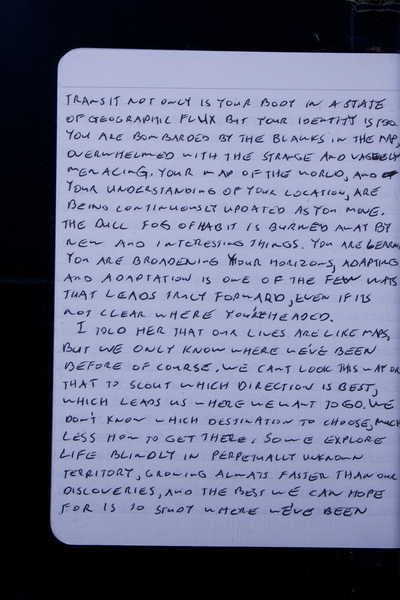 TRANSIT NOT ONLY IS YOUR BODY IN A STATE
OF GEOGRAPHIC FLUX BUT YOUR IDENTITY IS TOO.
YOU ARE BOMBARDED BY THE BLANKS IN THE MAP,
OVERWHELMED WITH THE STRANGE AND VAGUELY
MENACING. YOUR MAP OF THE WORLD, AND
YOUR UNDERSTANDING OF YOUR LOCATION, ARE
BEING CONTINUOUSLY UPDATED AS YOU MOVE.
THE DULL FOG OF HABIT IS BURNED AWAY BY
NEW AND INTERESTING THINGS. YOU ARE
YOU ARE BROADENING YOUR HORIZONS, ADAPTING
AND ADAPTATION IS ONE OF THE FEW WAYS
THAT LEADS TRULY FORWARD, EVEN IF IT'S
NOT CLEAR WHERE YOU'RE HEADED.
I TOLD HER THAT OUR LIVES ARE LIKE MAPS,
BUT WE ONLY KNOW WHERE WE'VE BEEN
BEFORE OF COURSE. WE CAN'T LOOK THIS WAY OR
THAT TO SCOUT WHICH DIRECTION IS BEST,
WHICH LEADS US WHERE WE WANT TO GO. WE
DON'T KNOW WHICH DESTINATION TO CHOOSE, MUCH
LESS HOW TO GET THERE. SO WE EXPLORE
LIFE BLINDLY IN PERPETUALLY UNKNOWN
TERRITORY, GROWING ALWAYS FASTER THAN OUR
DISCOVERIES, AND THE BEST WE CAN HOPE
FOR IS TO STUDY WHERE WE'VE BEEN